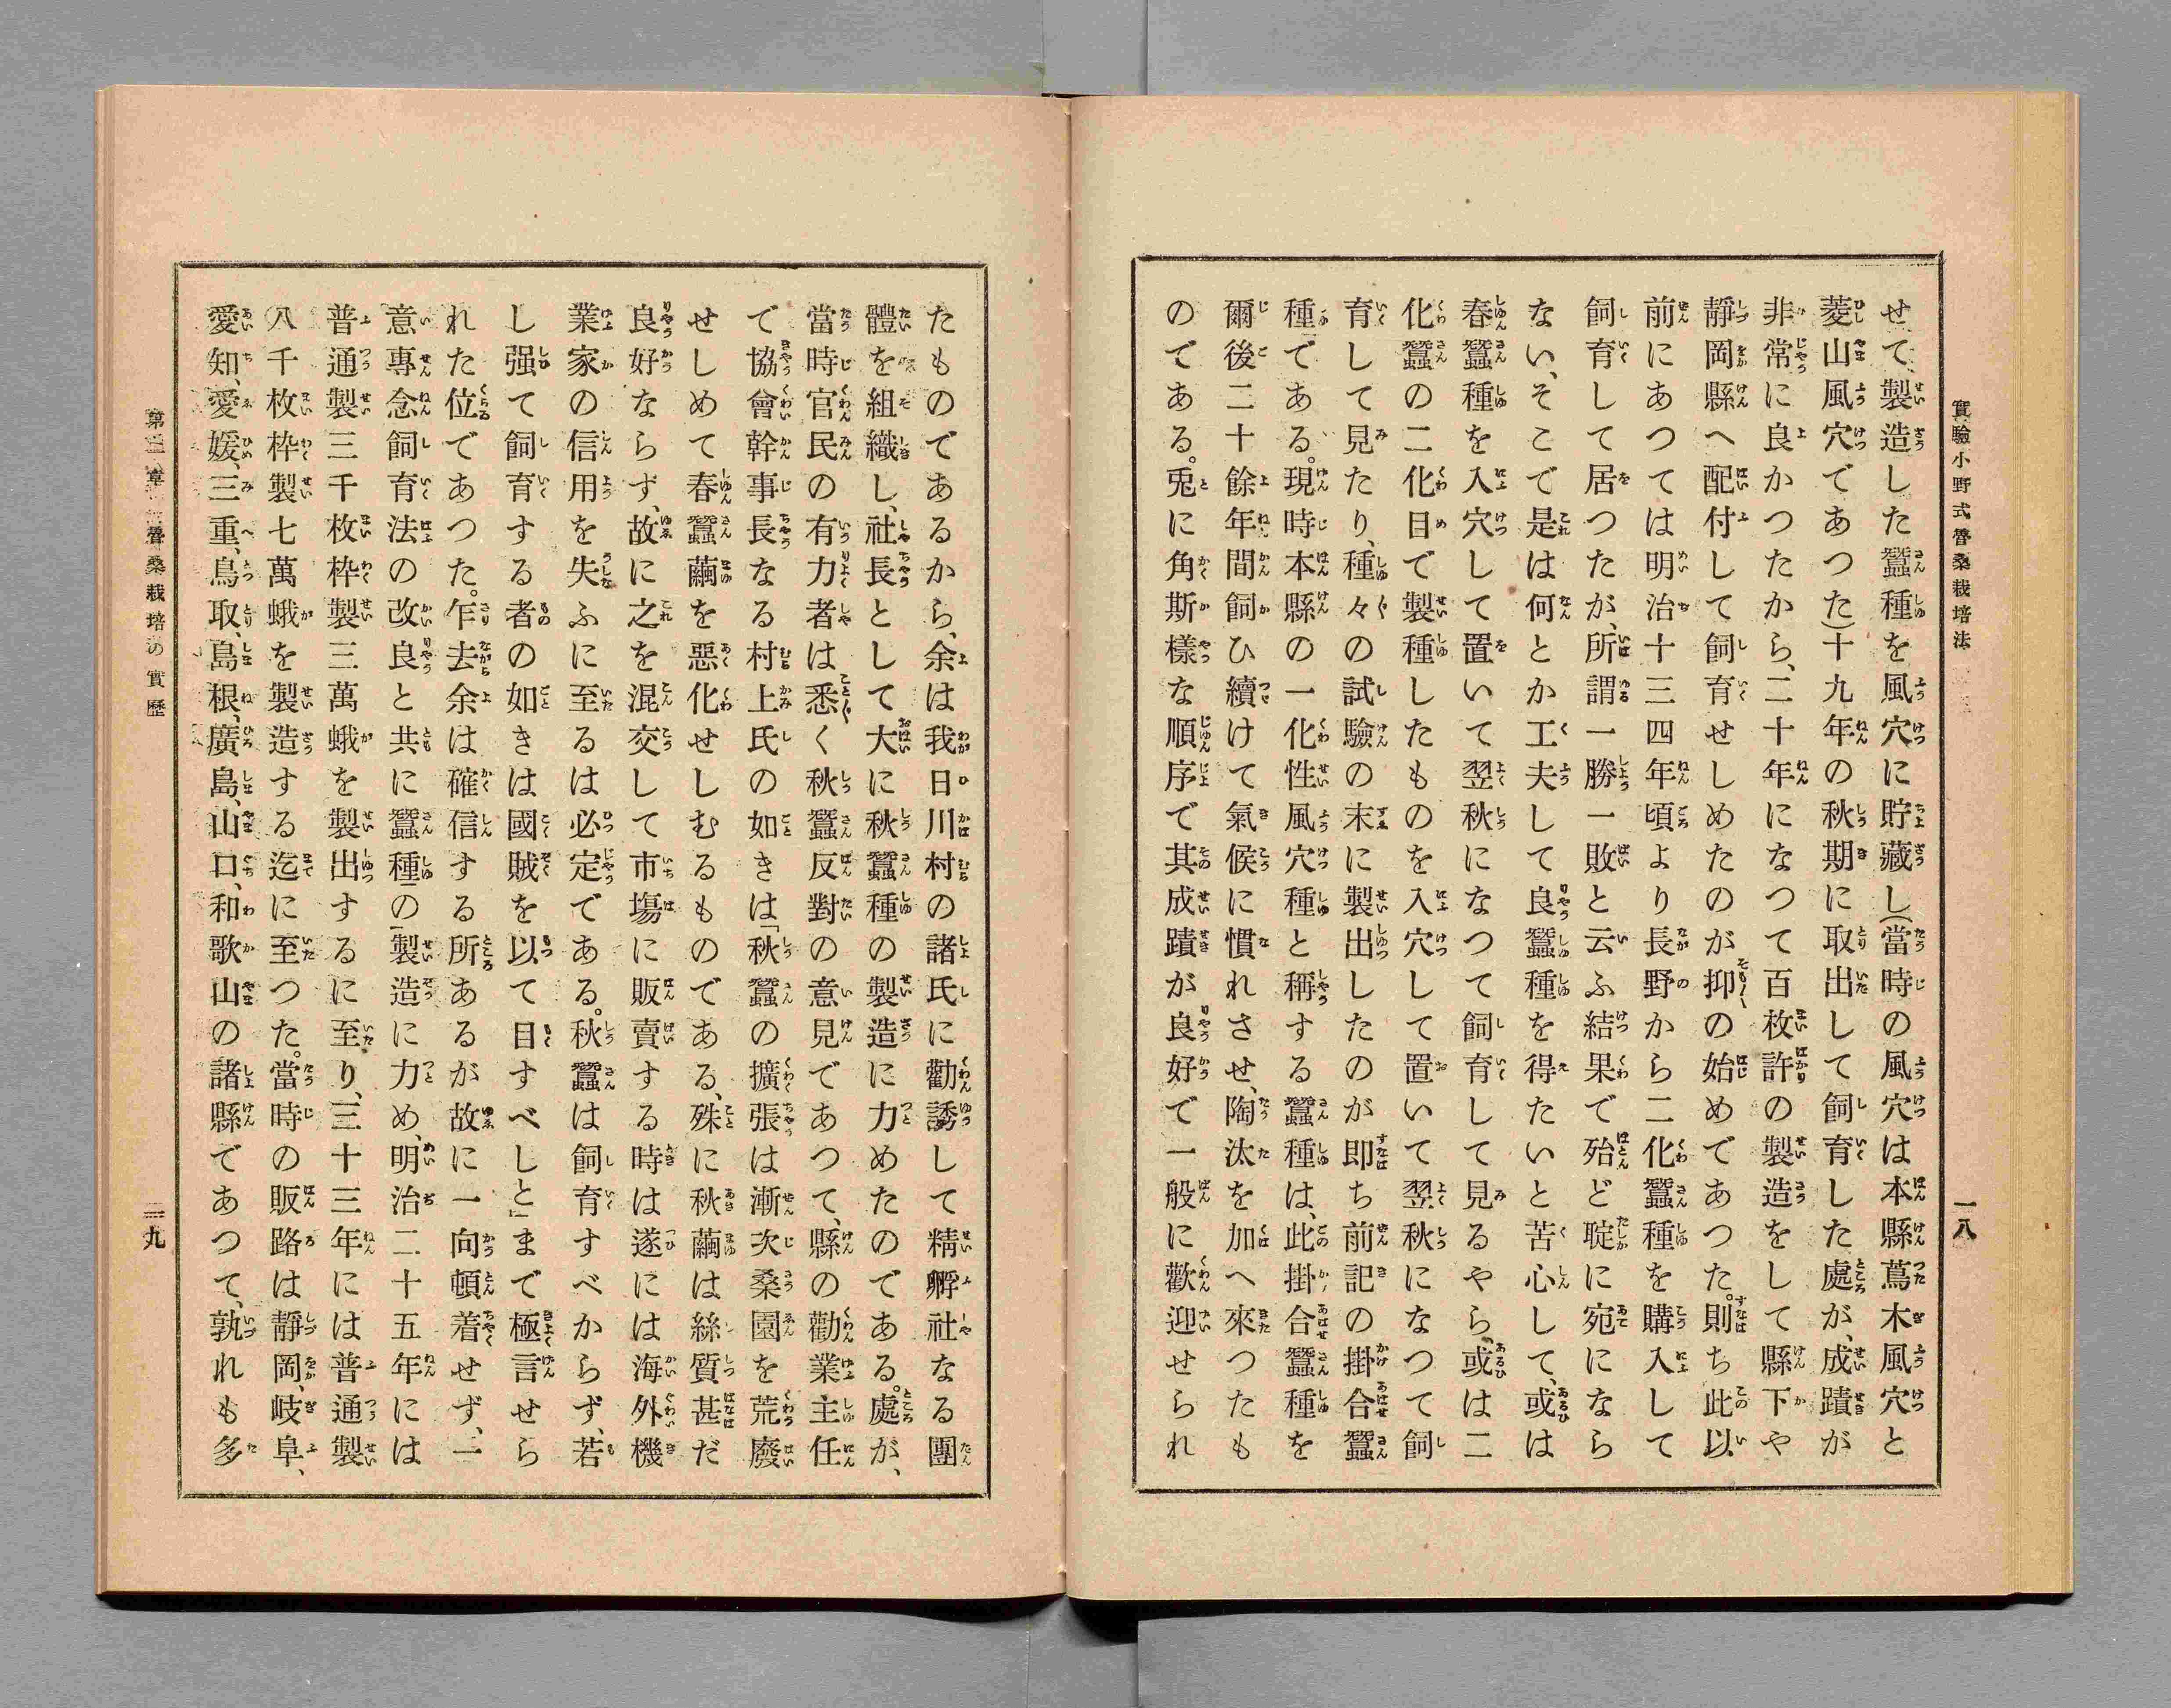 實驗小野式督桑栽培法
せて、製造した蠶種を風穴に貯藏し(當時の風穴は本縣蔦木風穴と
菱山風穴であつた)十九年の秋期に取出して飼育した處が、成蹟が
非常に良かつたから、二十年になつて百枚許の製造をして縣下や
靜岡縣へ配付して飼育せしめたのが抑の始めであつた。則ち此以
前にあつては明治十三四年頃より長野から二化蠶種を購入して
飼育して居つたが、所謂一勝一敗と云ふ結果で殆ど聢に宛になら
ない、そこで是は何とか工夫して良蠶種を得たいと苦心して、或は
春蠶種を入穴して置いて翌秋になつて飼育して見るやら、或は二
化蠶の二化目で製種したものを入穴して置いて翌秋になつて飼
育して見たり、種々の試驗の末に製出したのが即ち前記の掛合蠶
種である。現時本縣の一化性風穴種と稱する蠶種は、此掛合蠶種を
爾後二十餘年間飼ひ續けて氣候に慣れさせ、陶汰を加へ來つたも
のである。兎に角斯樣な順序で其成蹟が良好で一般に歡迎せられ
一八
たものであるから、余は我日川村の諸氏に勸誘して精孵社なる團
體を組織し、社長として大に秋蠶種の製造に力めたのである。處が、
當時官民の有力者は悉く秋蠶反對の意見であつて、縣の勸業主任
で協會幹事長なる村上氏の如きは「秋蠶の擴張は漸次桑園を荒廢
せしめて春蠶繭を惡化せしむるものである、殊に秋繭は絲質甚だ
良好ならず、故に之を混交して市場に販賣する時は遂には海外機
業家の信用を失ふに至るは必定である。秋蠶は飼育すべからず、若
し强て飼育する者の如きは國賊を以て目すべしと」まで極言せら
れた位であつた。乍去余は確信する所あるが故に一向頓着せず、一
意專念飼育法の改良と共に蠶種の製造に力め、明治二十五年には
普通製三千枚枠製三萬蛾を製出するに至り、三十三年には普通製
八千枚枠製七萬蛾を製造する迄に至つた。當時の販路は靜岡、岐阜、
愛知、愛媛、三重、鳥取、島根、廣島、山口、和歌山の諸縣であつて、孰れも多
第二章　督桑栽培の實歷
一九